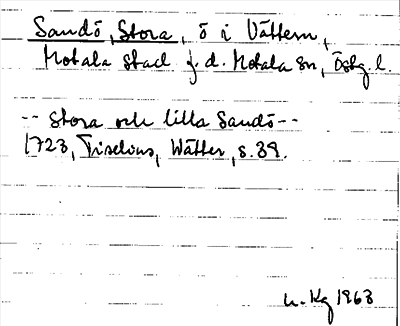 Sandö, Stora, ö i Vättern,
Motala stad f.d. Motala sn, Östg. l.
-- Stora och lilla Sandö --
1723, Tiselius, Wätter, s. 38.
n. Kg 1963